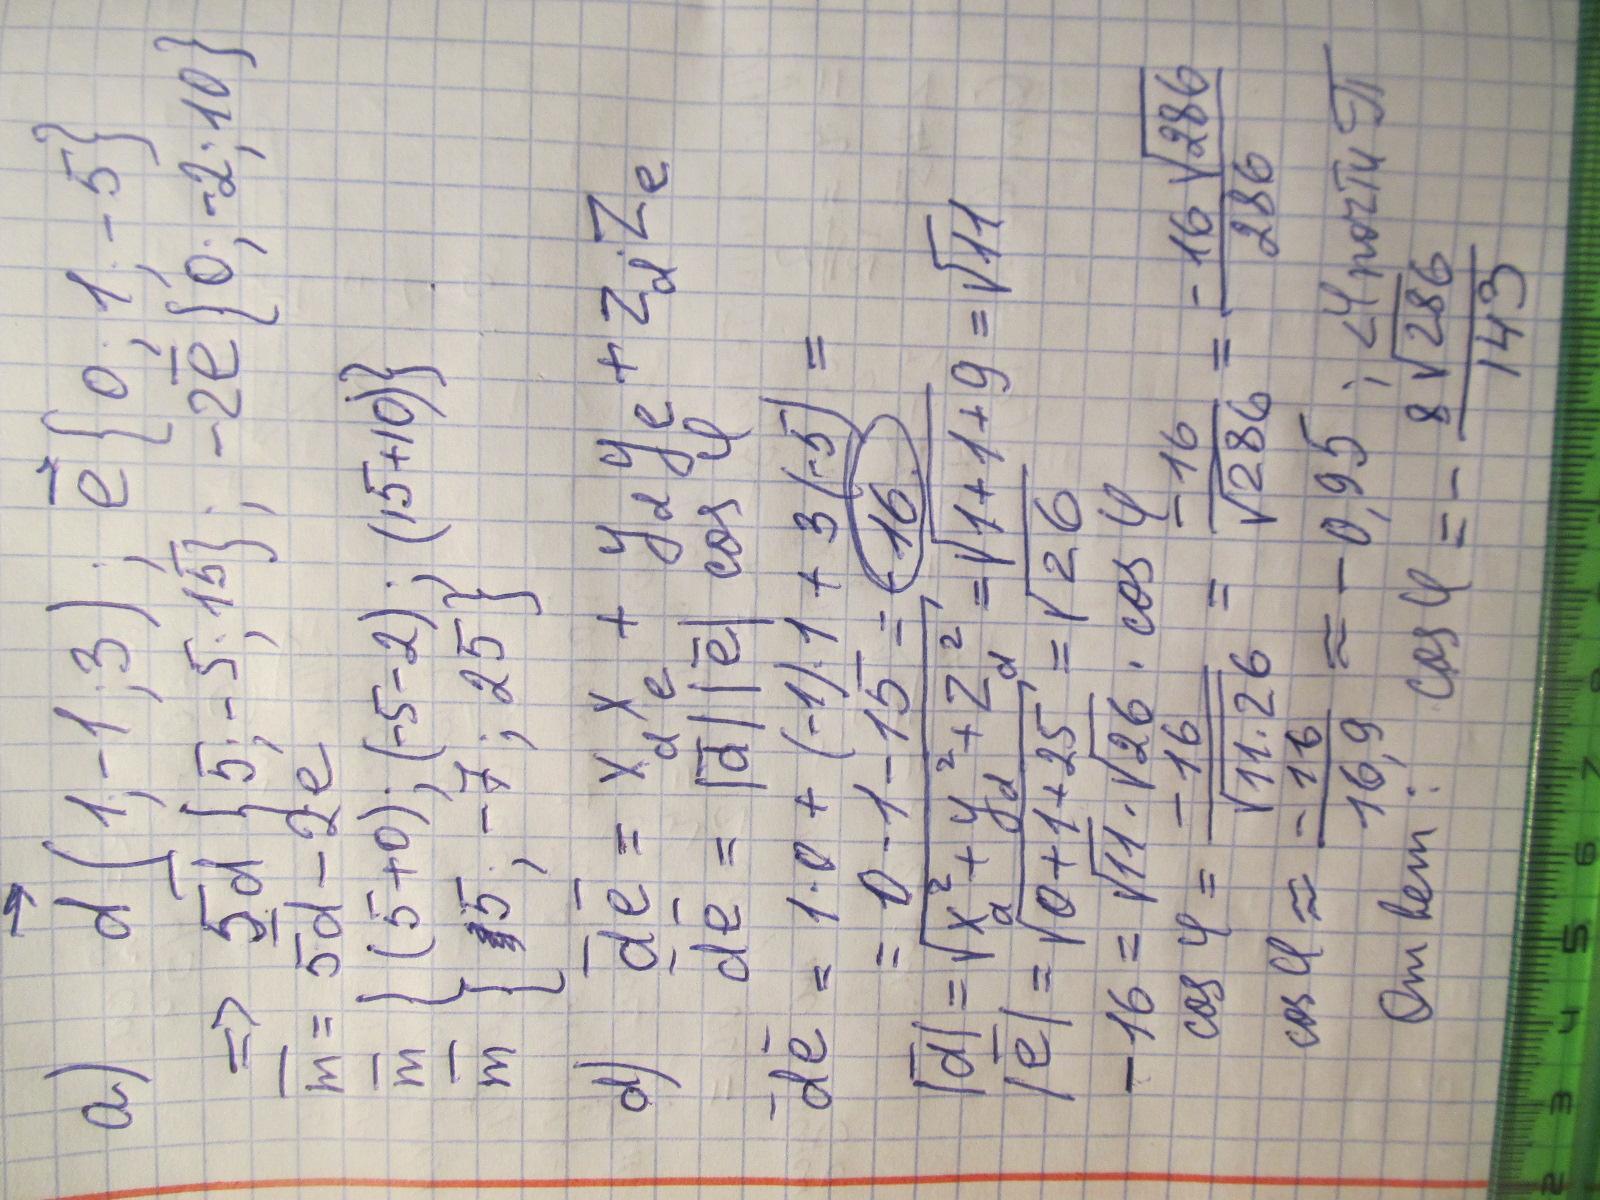 a) d{1;-1;3}; e{0;1;-5}
=> 5d{5;-5;15}; -2e{0;-2;10}
m = 5d - 2e
m {(5+0); (-5-2); (15+10)}
m {5; -7; 25}
d) de = x_d x_e + y_d y_e + z_d · z_e
de = |d| |e| cos φ
de = 1·0 + (-1)·1 + 3(-5) =
= 0 - 1 - 15 = -16
|d| = √x_d² + y_d² + z_d² = √1+1+9 = √11
|e| = √0+1+25 = √26
-16 = √11 · √26 · cos φ
cos φ = -16/√11·26 = -16/√286 = -16√286/286
cos φ ≈ -16/16,9 ≈ -0,95; ∠φ почти π
Ответ: cos φ = - 8√286/143
2 3 4 5 6 7